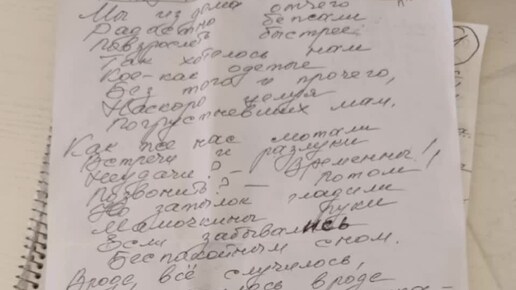 Мы из дома отчего
Радостно бежали
Повзрослеть быстрее
Так хотелось нам
Кое-как одетые
Без того и прочего,
Наскоро целуя
Погрустневших мам.
Как же нас мотали
Встречи и разлуки
Неудачи? – Временны!,
Позвонить? – Потом
Но затылок гладили
Мамочкины руки
Если забывались
Беспокойным сном.
Вроде, всё случилось,
лось вроде